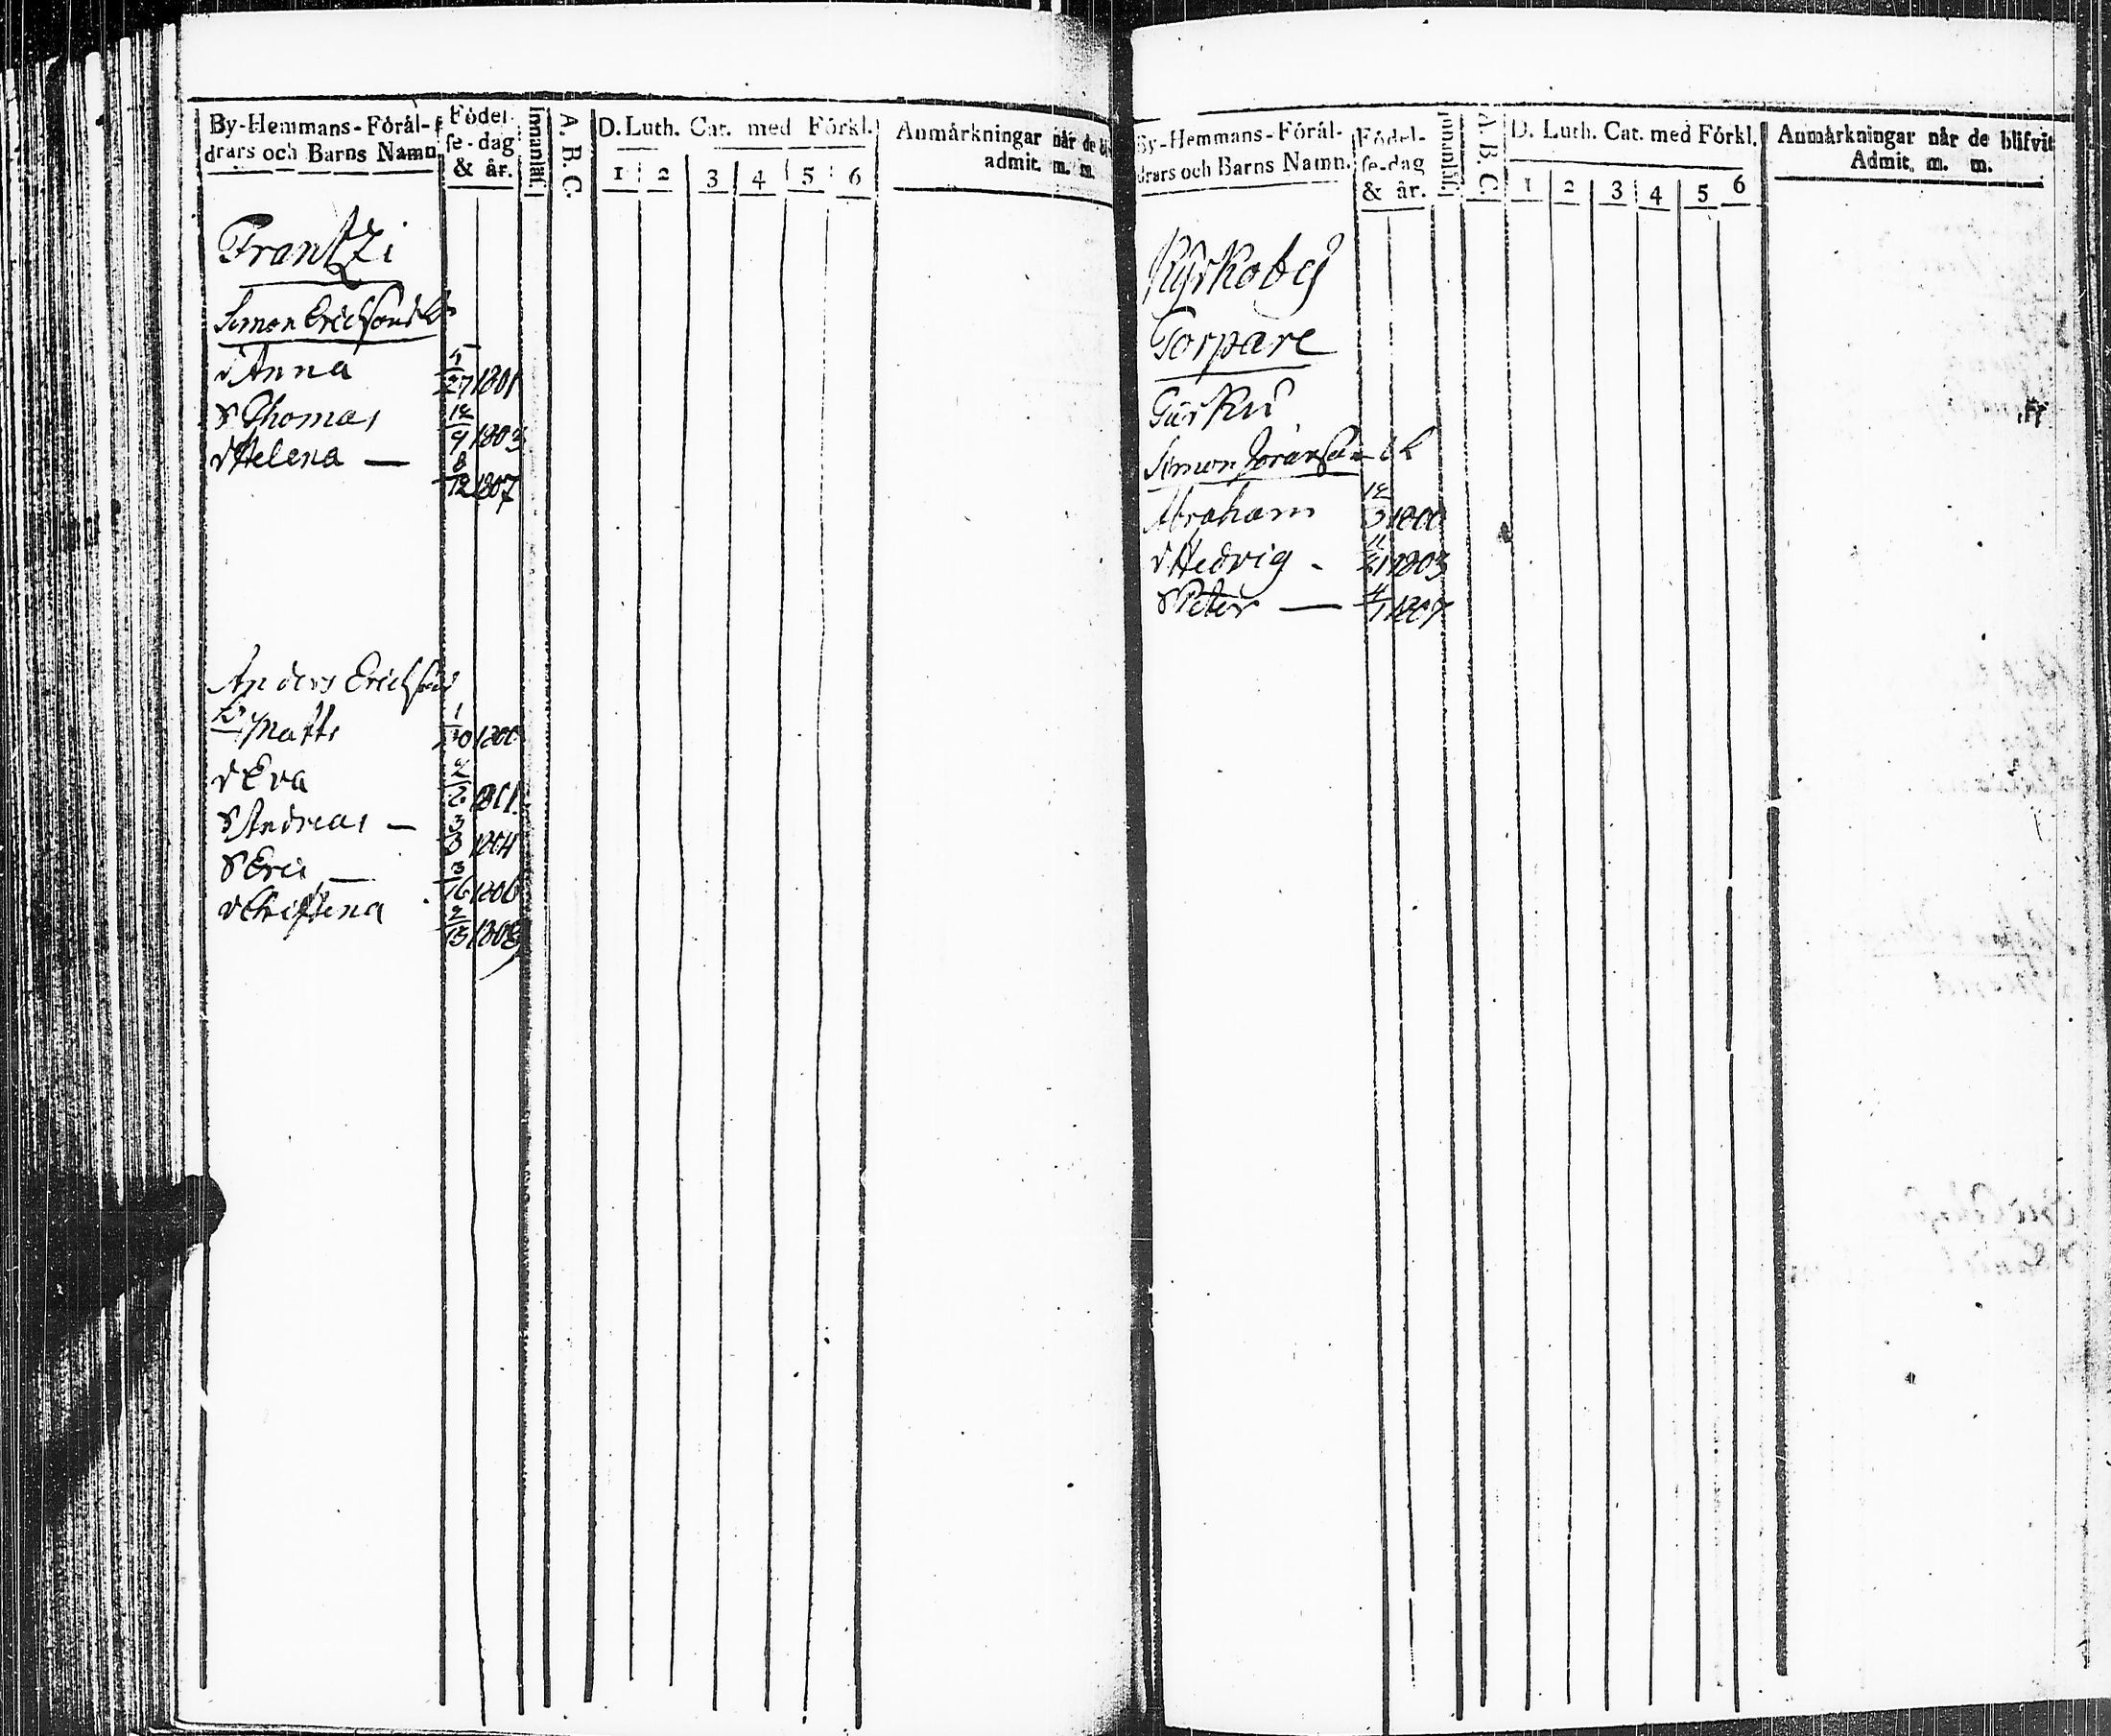 By-Hemmans-Förål-
drars och Barns Namn
Födel-
se-dag
& år.
Innanläs.
A. B. C.
D. Luth. Cat. med Förkl.
1 2 3 4 5 6
Anmärkningar när de bli
admit. m. m.
Frantzi
Simon Ericksons
d Anna 5/27 1801
S Thomas 12/9 1803
d Helena — 8/12 1807
Anders Ericksons
Matts 1/10 1800
d Eva
S Andreas — 3/3 1804
S Eric — 3/16 1806
d Christena 2/13 1808
By-Hemmans-Förål-
drars och Barns Namn.
Födel-
se-dag
& år.
Innanläs.
A. B. C.
D. Luth. Cat. med Förkl.
1 2 3 4 5 6
Anmärkningar når de blifvit
Admit. m. m.
Kyrkoby
Torpare
Simon Jöransson
Abraham 1800
d Hedvig - 1803
S Peter — 1807